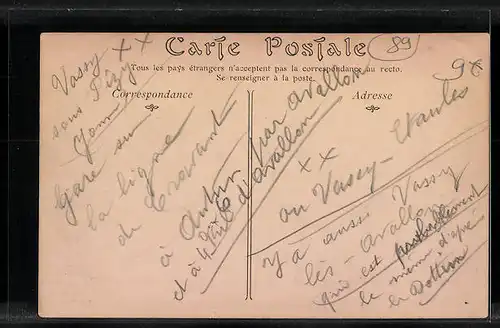 Carte Postale
89
9€
Tous les pays étrangers n'acceptent pas la correspondance au recto.
Se renseigner à la poste.
Correspondance
Adresse
Vassy xx
sous Pizy
Yonne
Gare sur
la ligne
de Cravant
à
et à d'Avallon
par Avallon
xx
ou Vassy - Etaules
Y a aussi Vassy
lès - Avallon
qui est probablement
le même d'après
le Bottin